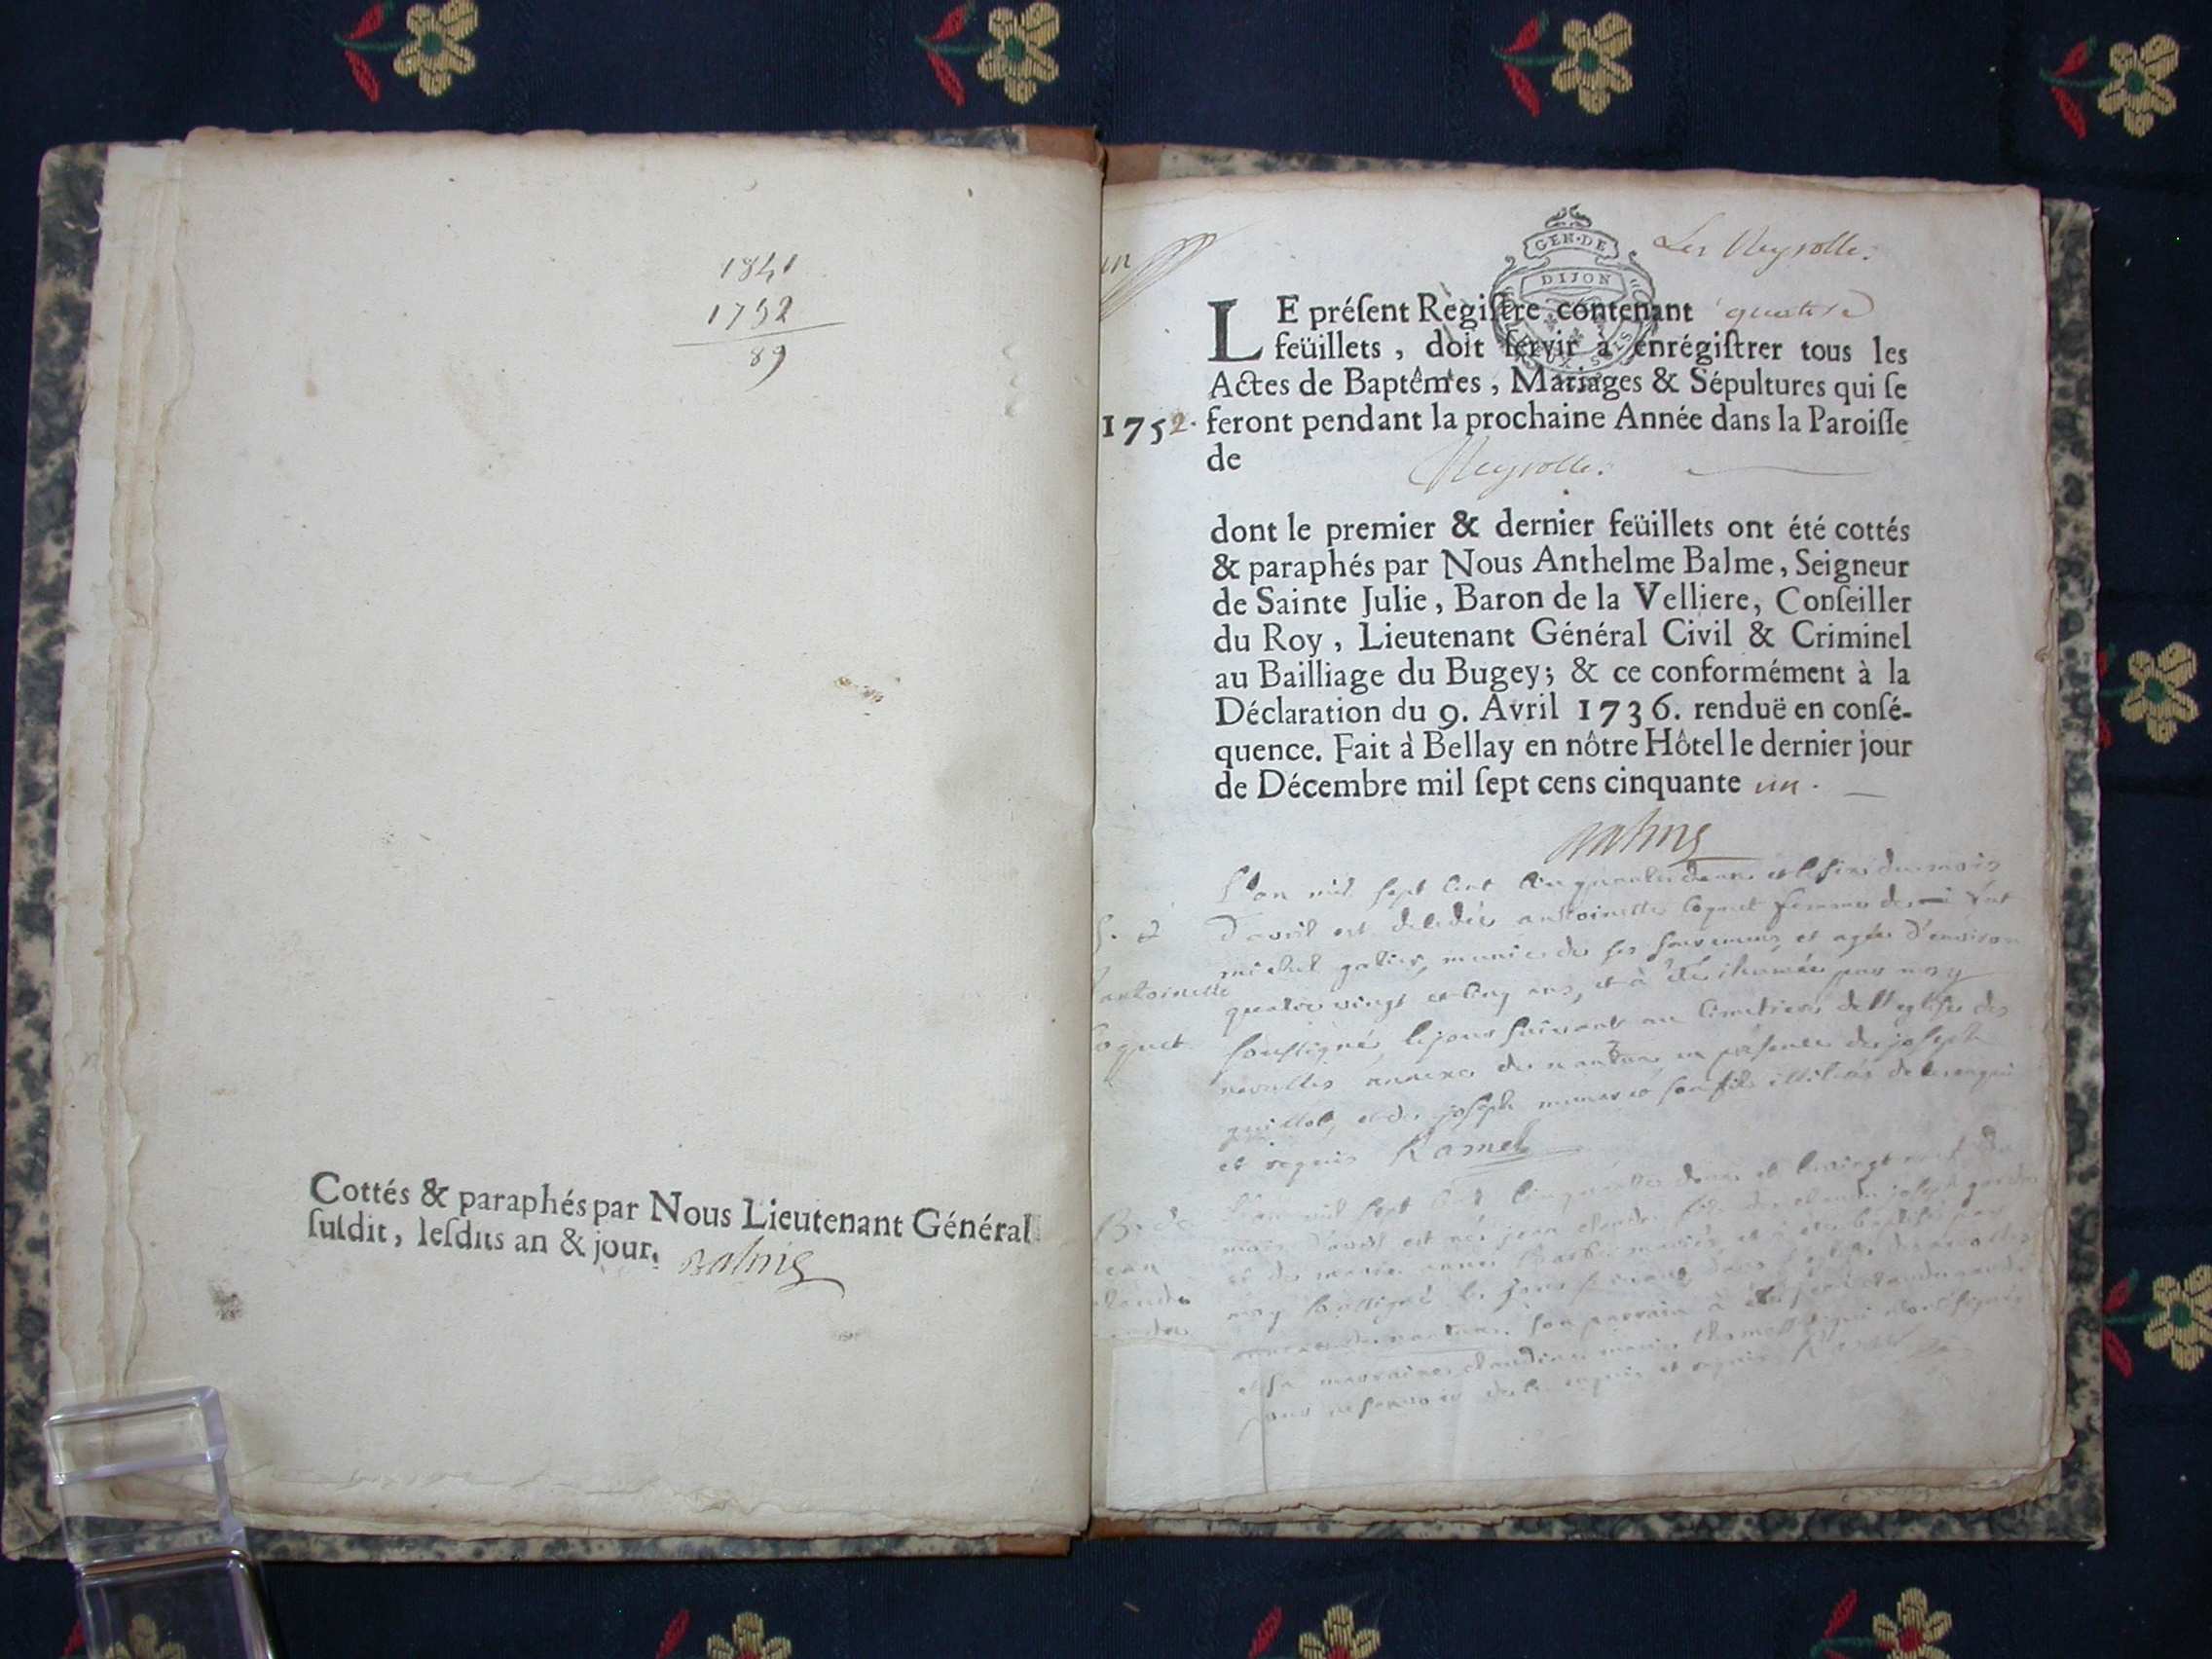 1841
1752
89
Cottés & paraphés par Nous Lieutenant Général
ſuſdit, leſdits an & jour.
Balme
un
GEN·DE
DIJON
Les Neyrolle.
LE préſent Regiſtre contenant quatre
feüillets, doit ſervir à enrégiſtrer tous les
Actes de Baptêmes, Mariages & Sépultures qui ſe
1752. feront pendant la prochaine Année dans la Paroiſſe
de Neyrolle.
dont le premier & dernier feüillets ont été cottés
& paraphés par Nous Anthelme Balme, Seigneur
de Sainte Julie, Baron de la Velliere, Conſeiller
du Roy, Lieutenant Général Civil & Criminel
au Bailliage du Bugey; & ce conformément à la
Déclaration du 9. Avril 1736. renduë en conſé-
quence. Fait à Bellay en nôtre Hôtel le dernier jour
de Décembre mil ſept cens cinquante un.
Balme
L'an mil sept cent cinquante deux et le six du mois
d'avril est decedée antoinette coquet femme de
michel munie de ses sacremens et agée d'environ
antoinette
quatre vingt et cinq ans, et à été ihumée par moy
coquet
soussigné, le jour suivant au cimetiere de l'eglise des
neyrolles annexe de nantua en présence de joseph
guillot, et de joseph son fils illiterés de ce enquis
et requis Ramel
L'an mil sept cent cinquante deux et le vingt
mois d'avril est né jean claude fils de claude joseph
et de marie mariés, et à été baptisé par
moy soussigné le jour suivant dans l'eglise des neyrolles
annexe de nantua. son parrain à été jean claude
et sa marraine claudine marie qui n'ont signé
pour ne sçavoir de ce enquis et requis